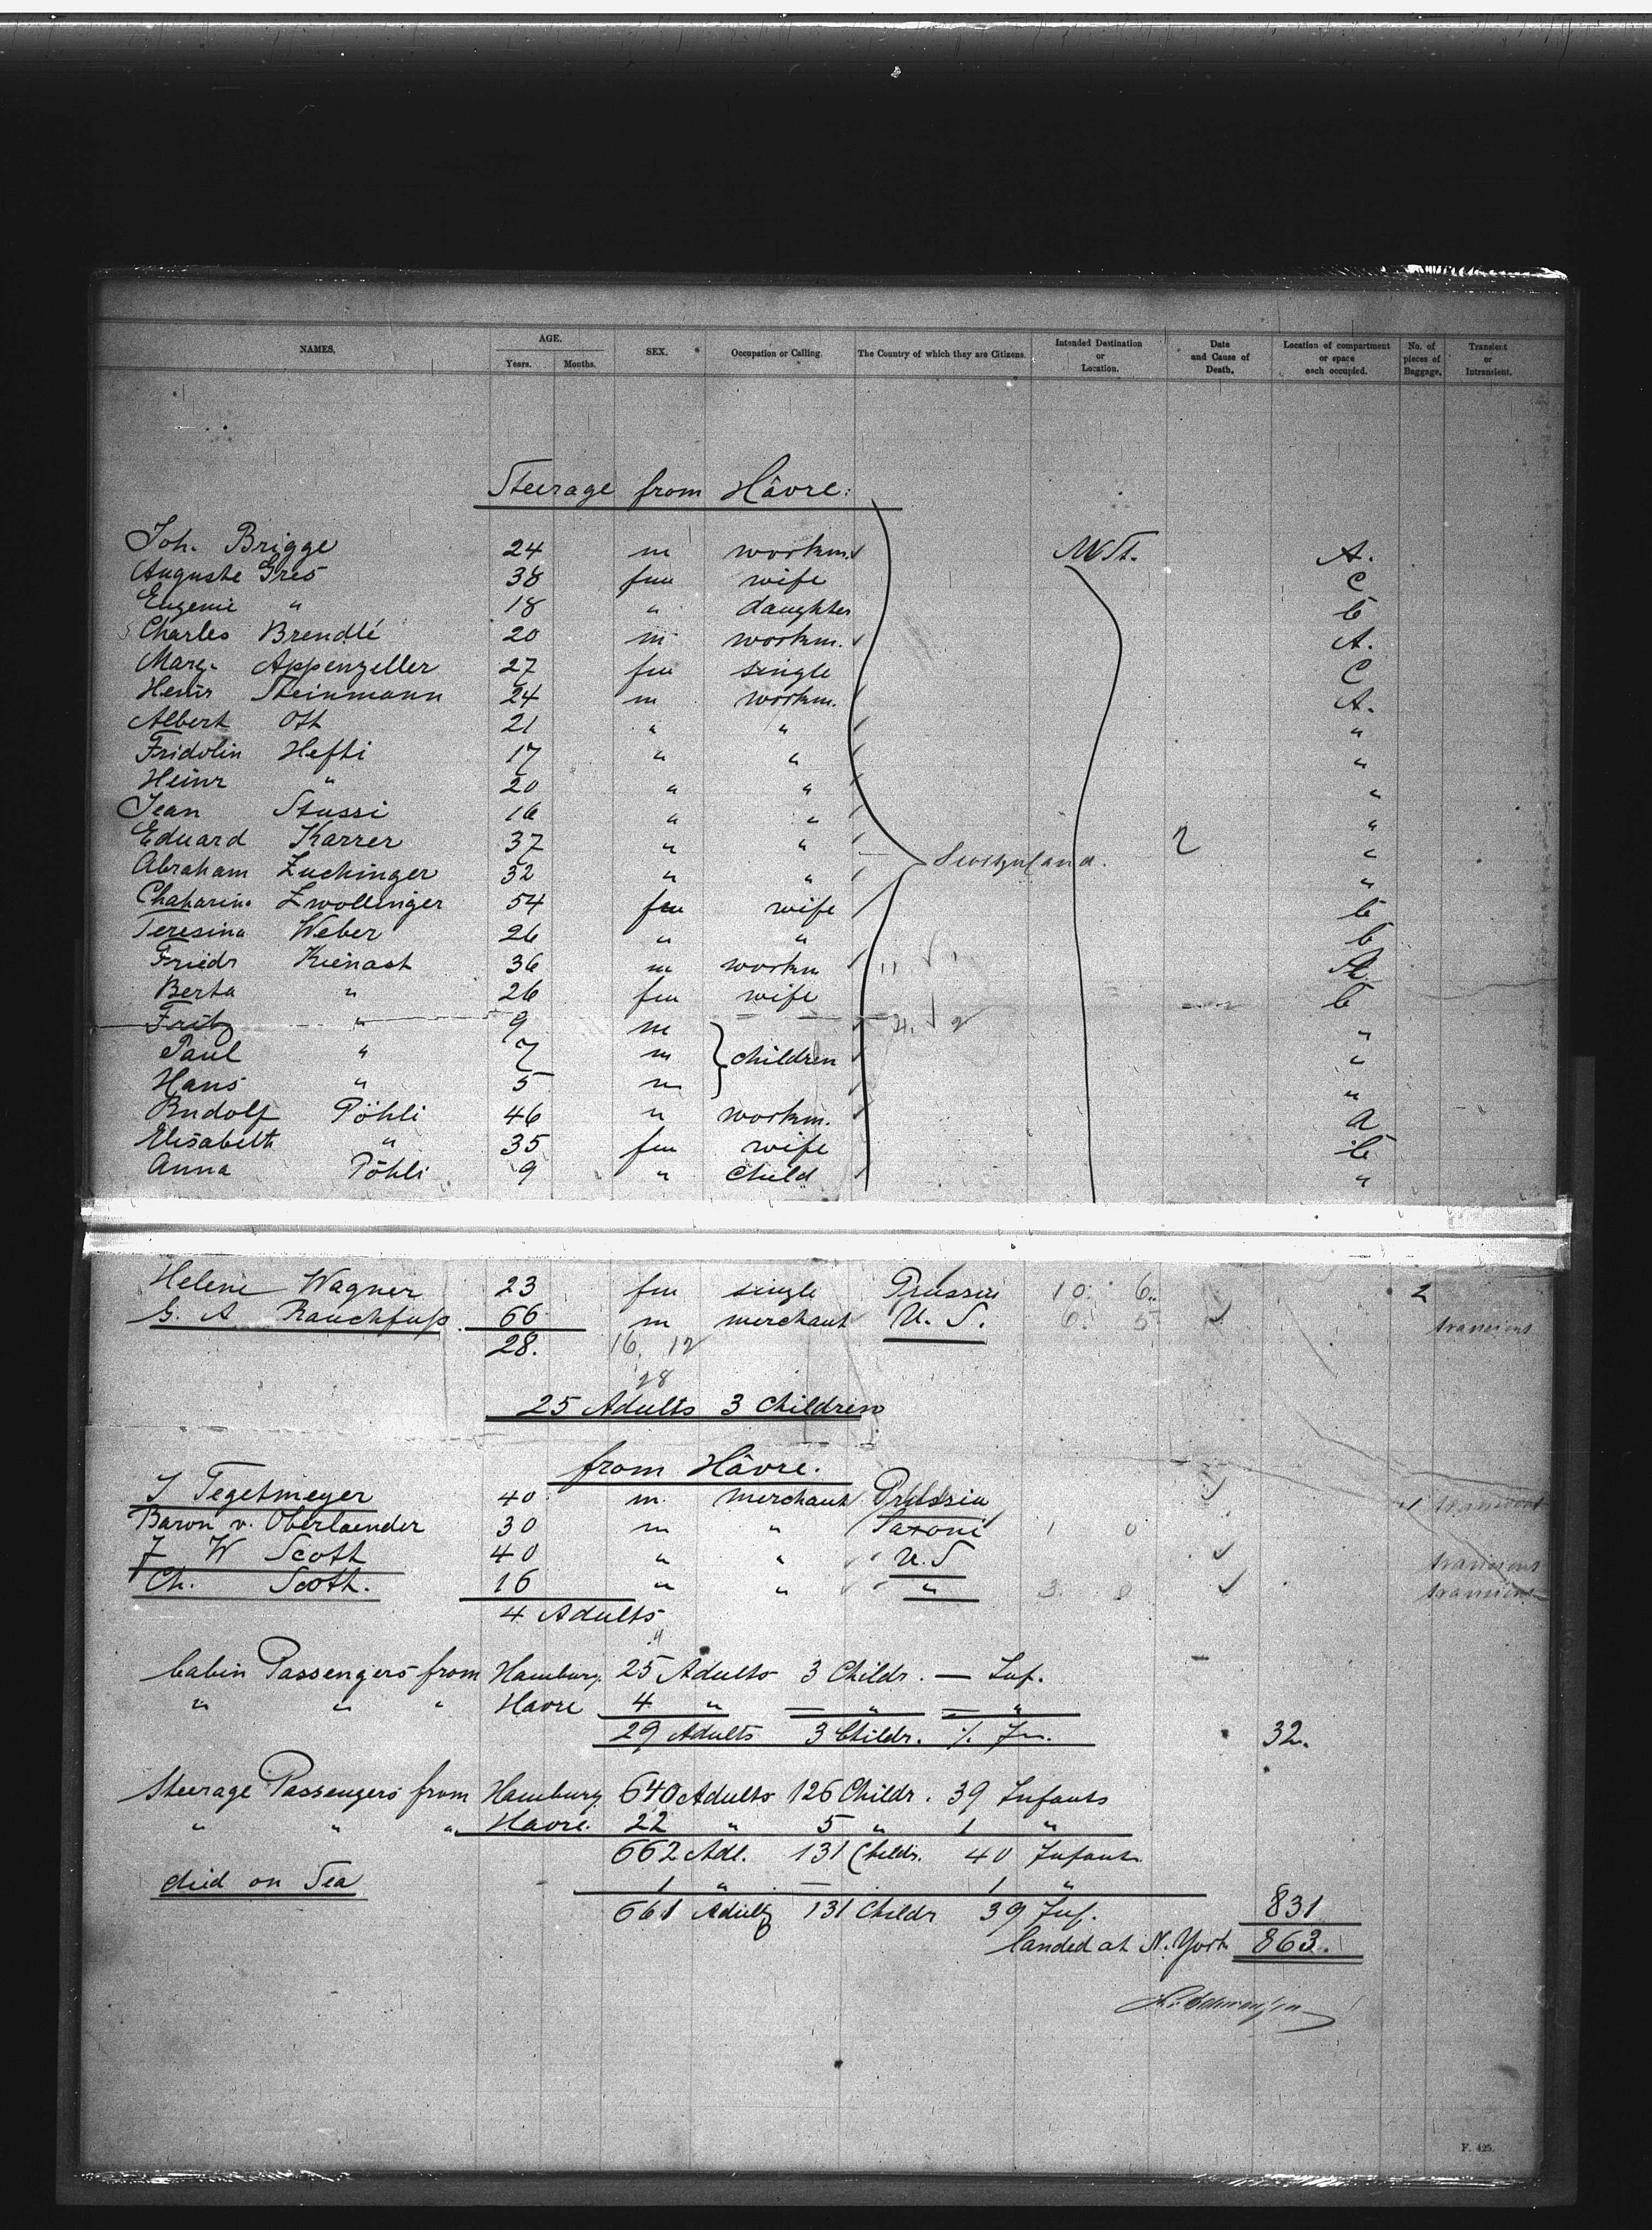 NAMES. AGE. SEX. Occupation or Calling. The Country of which they are Citizens. Intended Destination or Location. Date and Cause of Death. Location of compartment or space each occupied. No. of pieces of Baggage. Transient or Intransient.
Years. Months.
Steerage from Hâvre:
Joh. Brigge 24 m workm. W St. A.
Auguste Gres 38 fem wife C
Eugenie " 18 " daughter C
Charles Brendlé 20 m workm. A.
Marg. Appenzeller 27 fem single C
Heinr Steinmann 24 m workm. A.
Albert Ott 21 " " "
Fridolin Hefti 17 " " "
Heinr " 20 " " "
Jean Stussi 16 " " "
Eduard Karrer 37 " " "
Switzerland.
Abraham Zuchinger 32 " " "
Chatarina Zwollinger 54 fem wife C
Teresina Weber 26 " " C
Friedr Kienast 36 m workm A
Berta " 26 fem wife C
Fritz " 9 m "
Paul " 7 m children "
Hans " 5 m "
Rudolf Pöhli 46 " workm. A
Elisabeth " 35 fem wife C
Anna Pöhli 9 " Child "
Helene Wagner 23 fm single Prussia 10. 6. 2
G. A Rauchfuß 66 m merchant U. S. 6. 5 transient
28. 16. 12
28
25 Adults 3 Children
from Hâvre.
J Tegetmeyer 40 m. merchant Prussia 1 transient
Baron v. Oberlaender 30 m " Saxoni 1 0
J W Scott 40 " " U. S transient
Ch. Scott. 16 " " " 3. 0 transient
4 Adults
4
Cabin Passengers from Hamburg. 25 Adults 3 Childr. — Inf.
" " " Havre 4 " — " — "
29 Adults 3 Childr. %. In. 32.
Steerage Passengers from Hamburg. 640 Adults 126 Childr. 39 Infants
" " " Havre. 22 " 5 " 1 "
662 Adl. 131 Childr. 40 Infants.
died on Sea 1 " — 1 "
661 Adults 131 Childr 39 Inf. 831
landed at N. York 863.
F. 425.